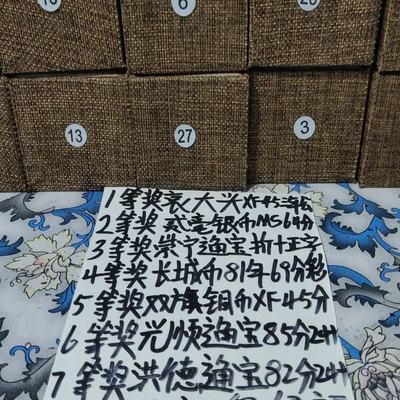 6
13
27
3
1等奖袁大头XF45三年
2等奖贰毫银币MS64分
3等奖崇宁通宝折十正字
4等奖长城币81年69分
5等奖双旗铜币XF45分
6等奖光顺通宝85分
7等奖洪德通宝82分